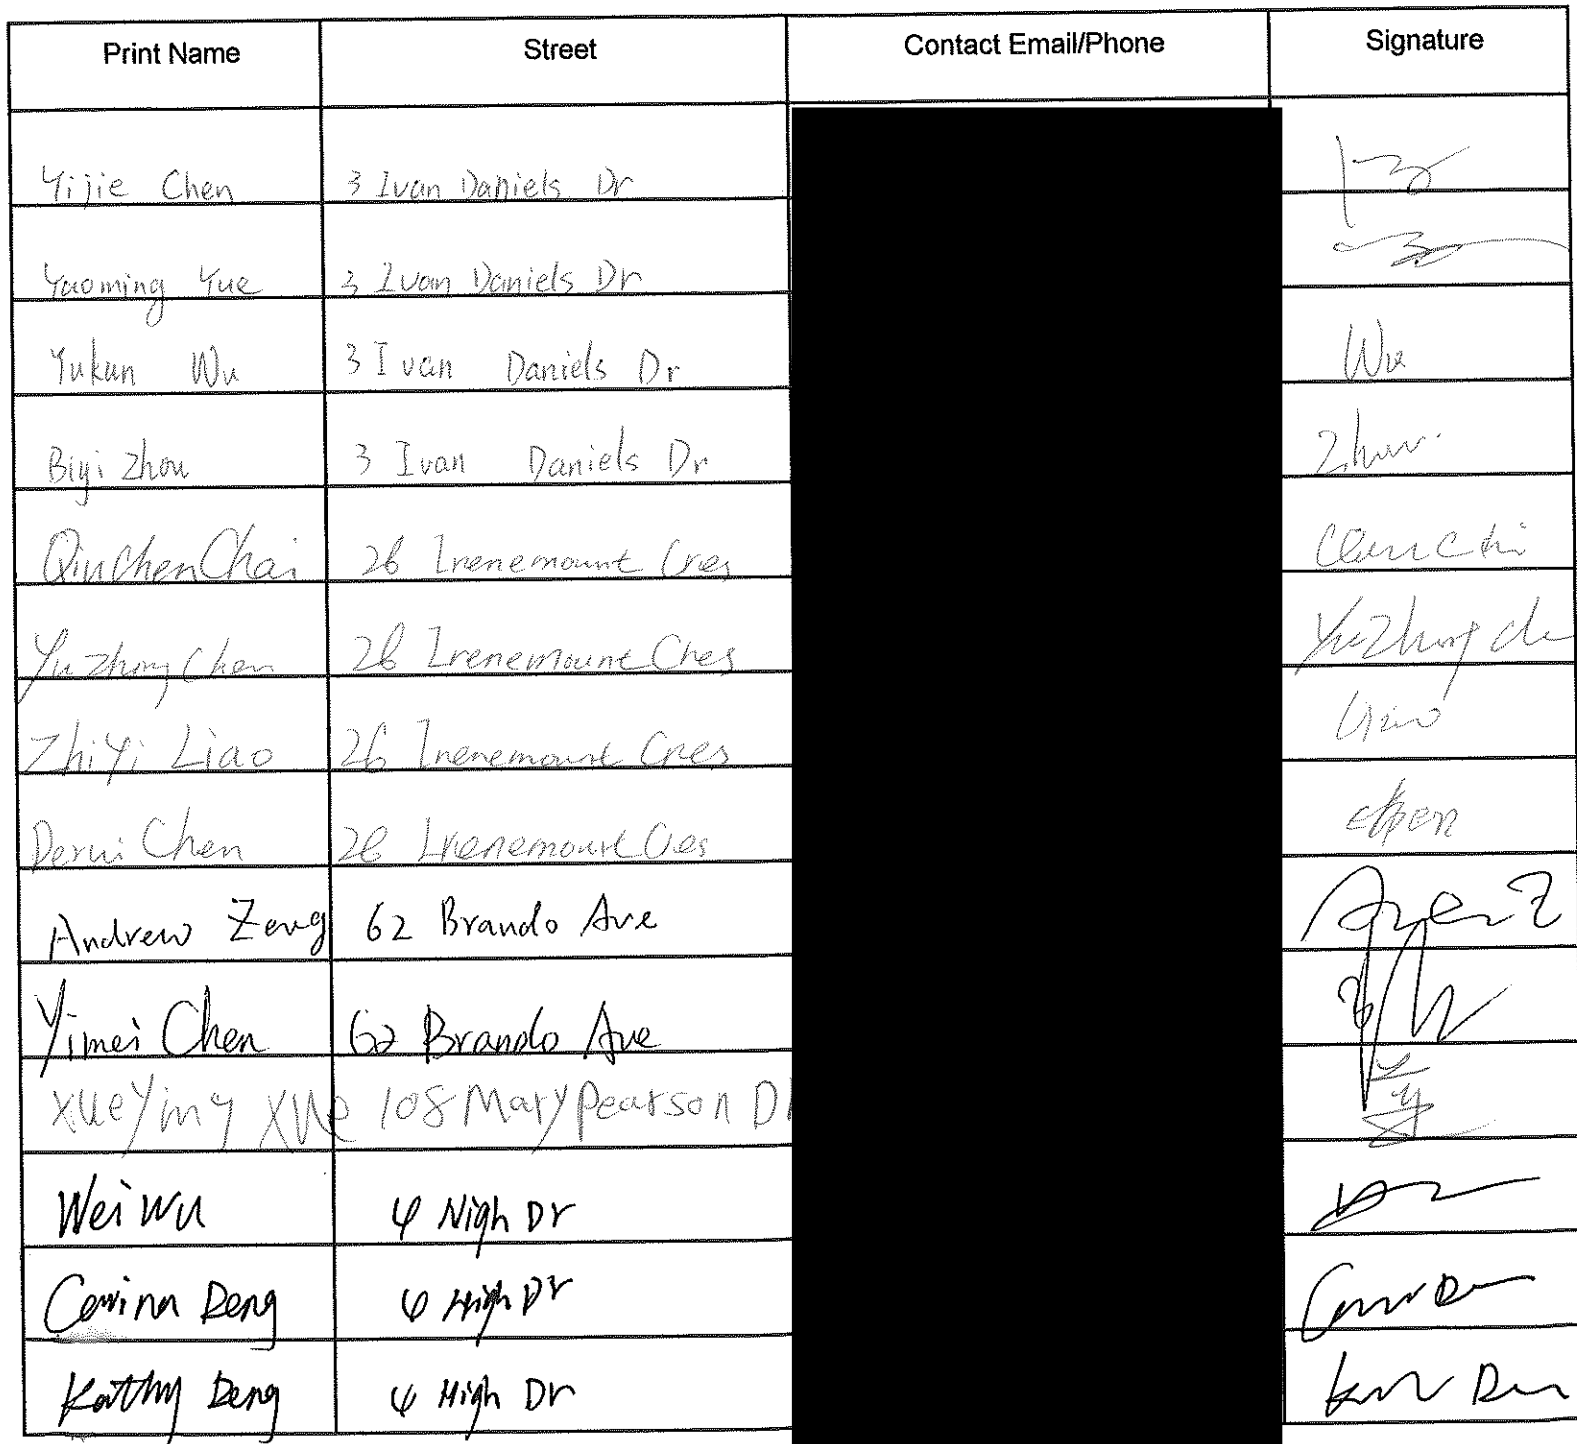 Print Name Street Contact Email/Phone Signature
Yijie Chen 3 Ivan Daniels Dr
Yaoming Yue 3 Ivan Daniels Dr
Yukun Wu 3 Ivan Daniels Dr Wu
Biyi Zhou 3 Ivan Daniels Dr Zhou
QiuChen Chai 26 Irenemount Cres
Yuzhong Chen 26 Irenemount Cres YuZhong
ZhiYi Liao 26 Irenemount Cres Liao
Derui Chen 26 Irenemount Cres chen
Andrew Zeng 62 Brando Ave
Yimei Chen 62 Brando Ave
XueYing XUe 108 Mary Pearson Dr
Wei Wu High Dr
Carina Deng High Dr
Kathy Deng High Dr